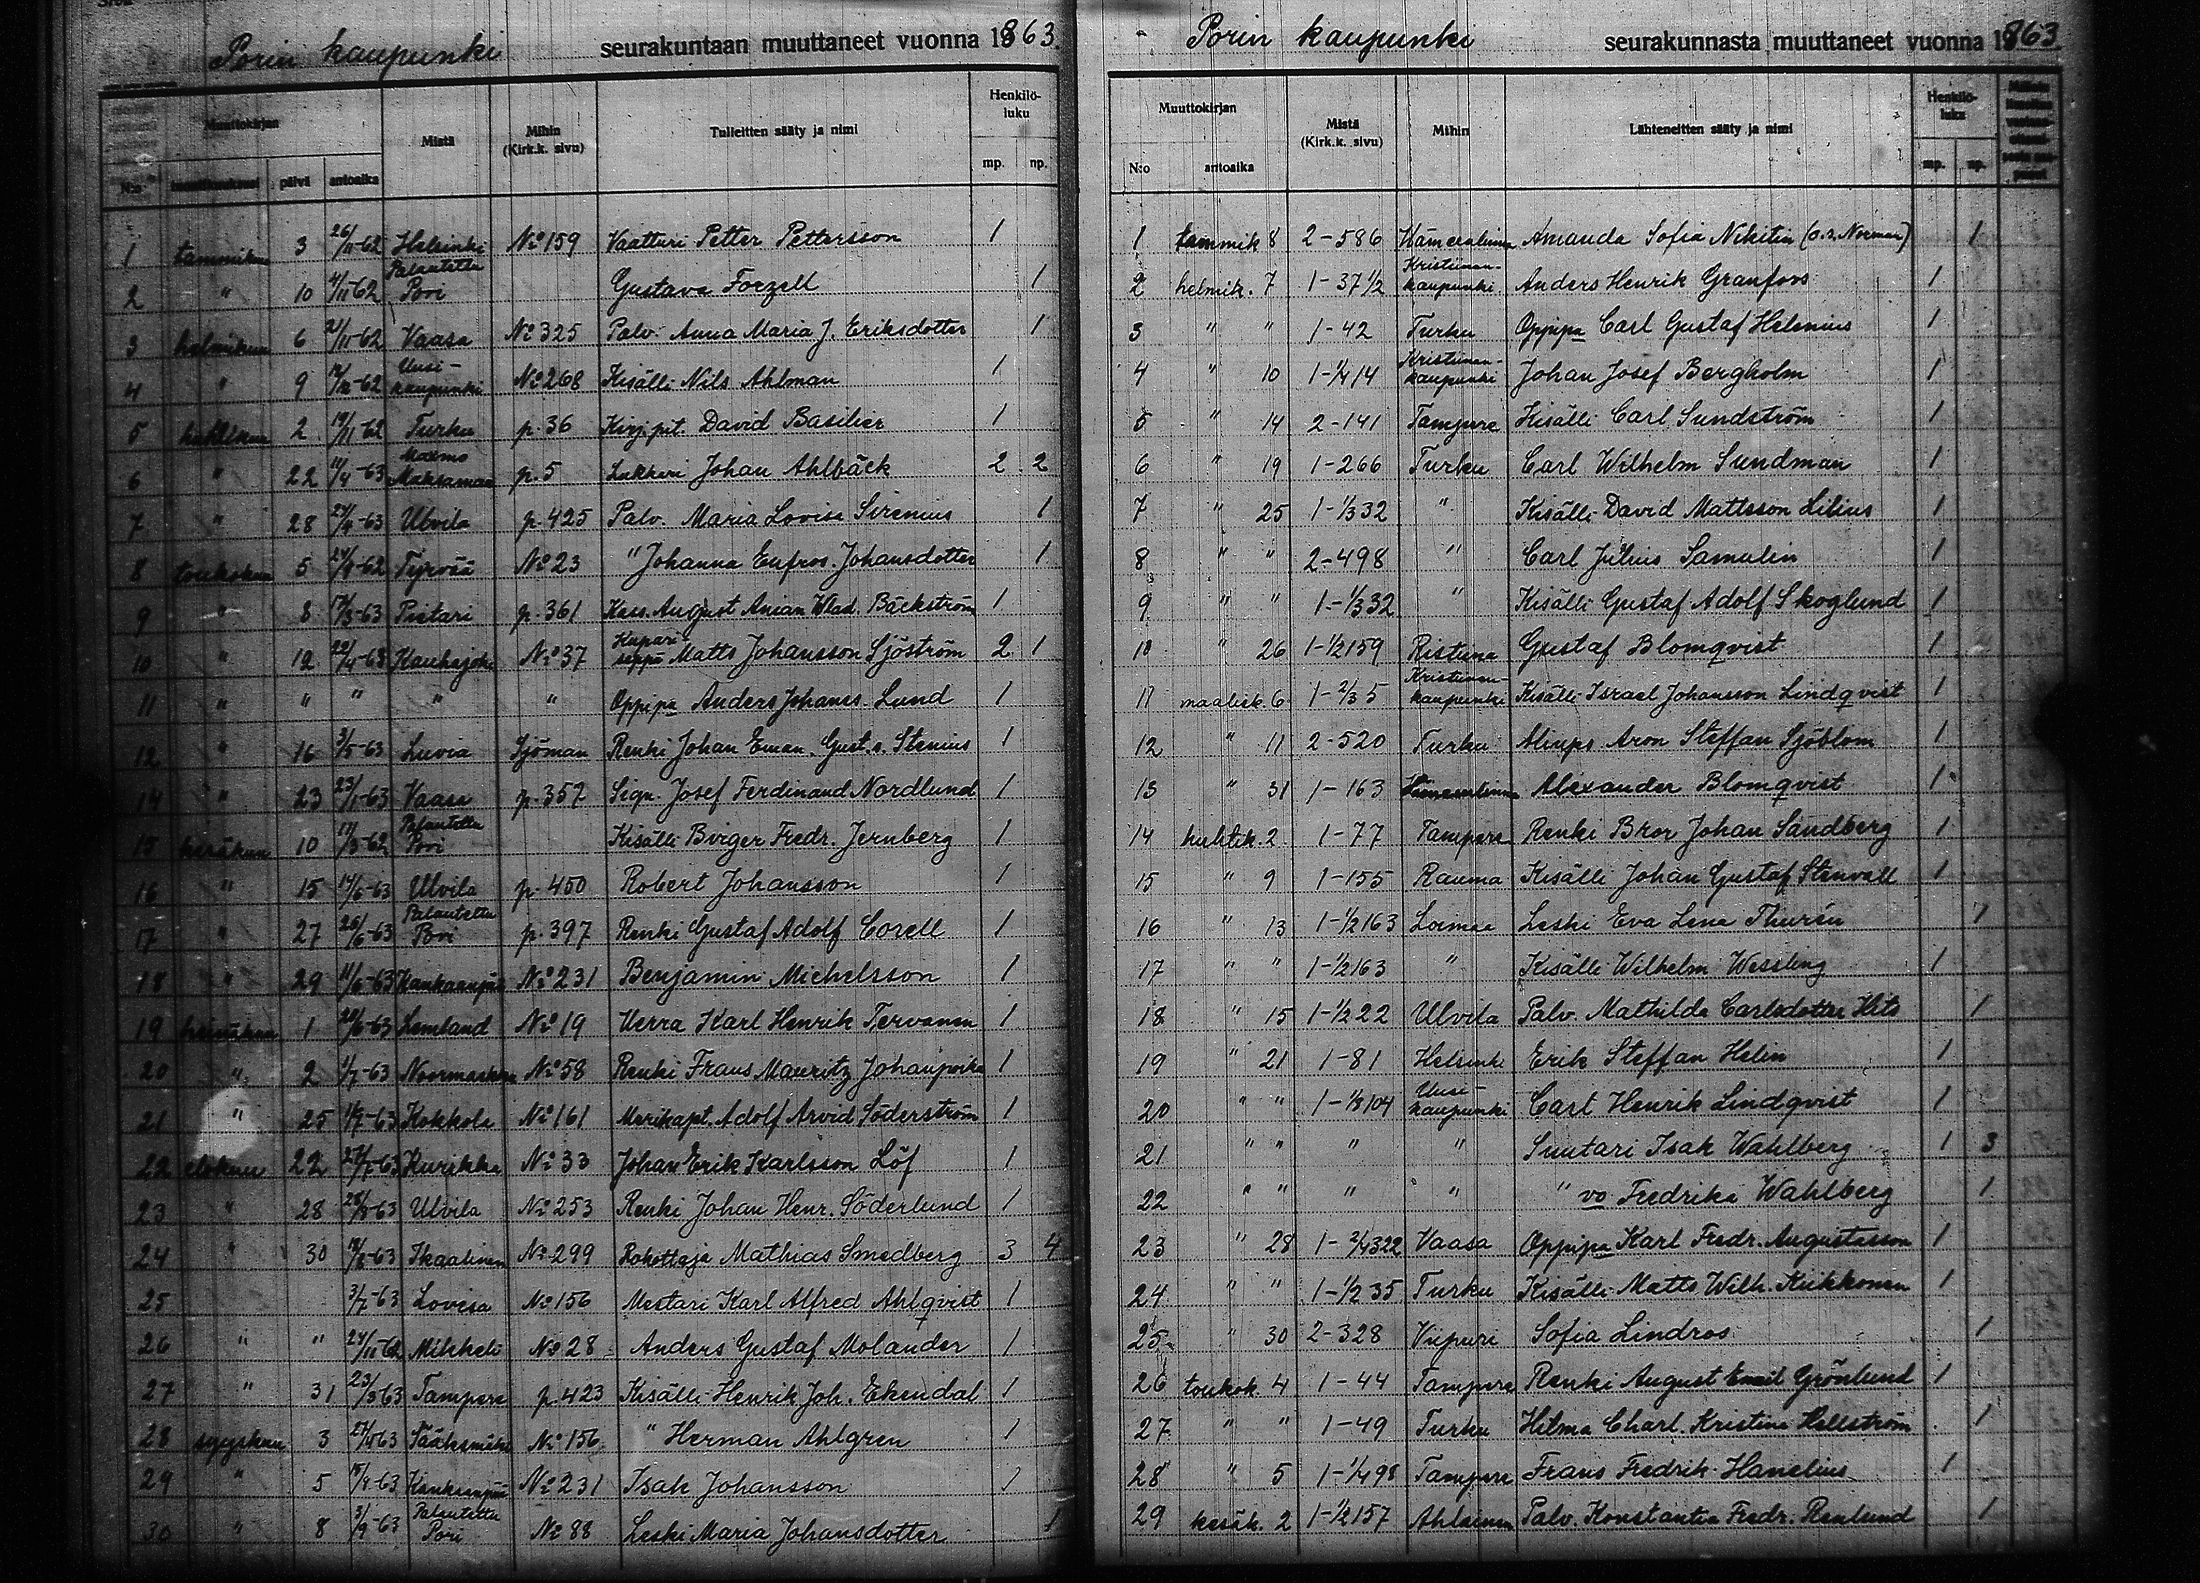 Porin kaupunki seurakuntaan muuttaneet vuonna 1863.
Muuttokirjan Mistä Mihin (Kirk.k. sivu) Tulleitten sääty ja nimi Henkilöluku
N:o päivä antoaika mp. np.
1 tammikuu 3 26/11-62 Helsinki No 159 Vaatturi Petter Pettersson 1
2 " 10 4/11-62 Palautettu Pori Gustava Forzell 1
3 helmikuu 6 21/11-62 Vaasa No 325 Palv. Anna Maria J. Eriksdotter 1
4 " 9 Uusi-kaupunki No 268 Kisälli Nils Ahlman 1
5 huhtikuu 2 19/11-62 Turku p. 36 Kirj.pit. David Basilier 1
6 " 22 14/4-63 Maxmo Maksamaa p. 5 Lukkari Johan Ahlbäck 2 2
7 " 28 24/4-63 Ulvila p. 425 Palv. Maria Lovisa Sirenius 1
8 toukokuu 5 Tyrvää No 23 " Johanna Eufros. Johansdotter 1
9 " 8 Pietari p. 361 Kass. August Anian Wlad. Bäckström 1
10 " 12 20/4-63 Kauhajoki No 37 Kupariseppä Matts Johansson Sjöström 2 1
11 " " " " " Oppipa Anders Johanss. Lund 1
12 " 16 3/5-63 Luvia Sjöman Renki Johan Eman. Gust.s. Stenius 1
14 " 23 23/1-63 Vaasa p. 357 Sign. Josef Ferdinand Nordlund 1
15 kesäkuu 10 17/3-62 Palautettu Pori Kisälli Birger Fredr. Jernberg 1
16 " 15 14/6-63 Ulvila p. 450 Robert Johansson 1
17 " 27 26/6-63 Palautettu Pori p. 397 Renki Gustaf Adolf Corell 1
18 " 29 11/6-63 Kankaanpää No 231 Benjamin Michelsson 1
19 heinäkuu 1 20/6-63 Lemland No 19 Herra Karl Henrik Tervonen 1
20 " 2 1/7-63 Noormarkku No 58 Renki Frans Mauritz Johanpoika 1
21 " 25 Kokkola No 161 Merikapt. Adolf Arvid Söderström 1
22 elokuu 22 27/7-63 Kurikka No 33 Johan Erik Karlsson Löf 1
23 " 28 28/8-63 Ulvila No 253 Renki Johan Henr. Söderlund 1
24 " 30 Ikaalinen No 299 Rokottaja Mathias Smedberg 3 4
25 3/7-63 Lovisa No 156 Mestari Karl Alfred Ahlqvist 1
26 " " 24/11-62 Mikkeli No 28 Anders Gustaf Molander 1
27 " 31 23/3-63 Tampere p. 423 Kisälli Henrik Joh. Ekendal 1
28 syyskuu 3 Sääksmäki No 156 " Herman Ahlgren 1
29 " 5 Kankaanpää No 231 Isak Johansson 1
30 " 8 3/9-63 Palautettu Pori No 88 Leski Maria Johansdotter 1
Porin kaupunki seurakunnasta muuttaneet vuonna 1863
Muuttokirjan Mistä (Kirk.k. sivu) Mihin Lähteneitten sääty ja nimi Henkilöluku
N:o antoaika mp. np.
1 tammik 8 2-586 Hämeenlinna Amanda Sofia Nikitin (o.s. Norman) 1
2 helmik. 7 1-37 1/2 Kristiinan-kaupunki Anders Henrik Granfors 1
3 " " 1-42 Turku Oppipa Carl Gustaf Helenius 1
4 " 10 1-1/4 14 Kristiinan-kaupunki Johan Josef Bergholm 1
5 " 14 2-141 Tampere Kisälli Carl Sundström 1
6 " 19 1-266 Turku Carl Wilhelm Sundman 1
7 " 25 1-1/3 32 " Kisälli David Mattsson Lilius 1
8 " " 2-498 " Carl Julius Samulin 1
9 " " 1-1/3 32 " Kisälli Gustaf Adolf Skoglund 1
10 " 26 1-1/2 159 Ristiina Gustaf Blomqvist 1
11 maalisk. 6 1-2/3 5 Kristiinan-kaupunki Kisälli Israel Johansson Lindqvist 1
12 " 11 2-520 Turku Aliups Aron Steffan Sjöblom 1
13 " 31 1-163 Hämeenlinna Alexander Blomqvist 1
14 huhtik. 2 1-77 Tampere Renki Bror Johan Sandberg 1
15 " 9 1-155 Rauma Kisälli Johan Gustaf Stenvall 1
16 " 13 1-1/2 163 Loimaa Leski Eva Lena Thurén 1
17 " " 1-1/2 163 " Kisälli Wilhelm Wessling 1
18 " 15 1-1/2 22 Ulvila Palv. Mathilda Carlsdotter Hits 1
19 " 21 1-81 Helsinki Erik Steffan Helin 1
20 " " 1-1/8 104 Uusi-kaupunki Carl Henrik Lindqvist 1
21 " " " " Suutari Isak Wahlberg 1 3
22 " " " " " vo Fredrika Wahlberg 1
23 " 28 1-3/4 322 Vaasa Oppipa Karl Fredr. Augustsson 1
24 " " 1-1/2 35 Turku Kisälli Matts Wilh. Kiikkonen 1
25 " 30 2-328 Viipuri Sofia Lindros 1
26 toukok. 4 1-44 Tampere Renki August Emil Grönlund 1
27 " " 1-49 Turku Hilma Charl. Kristina Hellström 1
28 " 5 1-1/4 98 Tampere Frans Fredrik Hanelius 1
29 kesäk. 2 1-1/2 157 Ahlainen Palv. Konstantia Fredr. Renlund 1